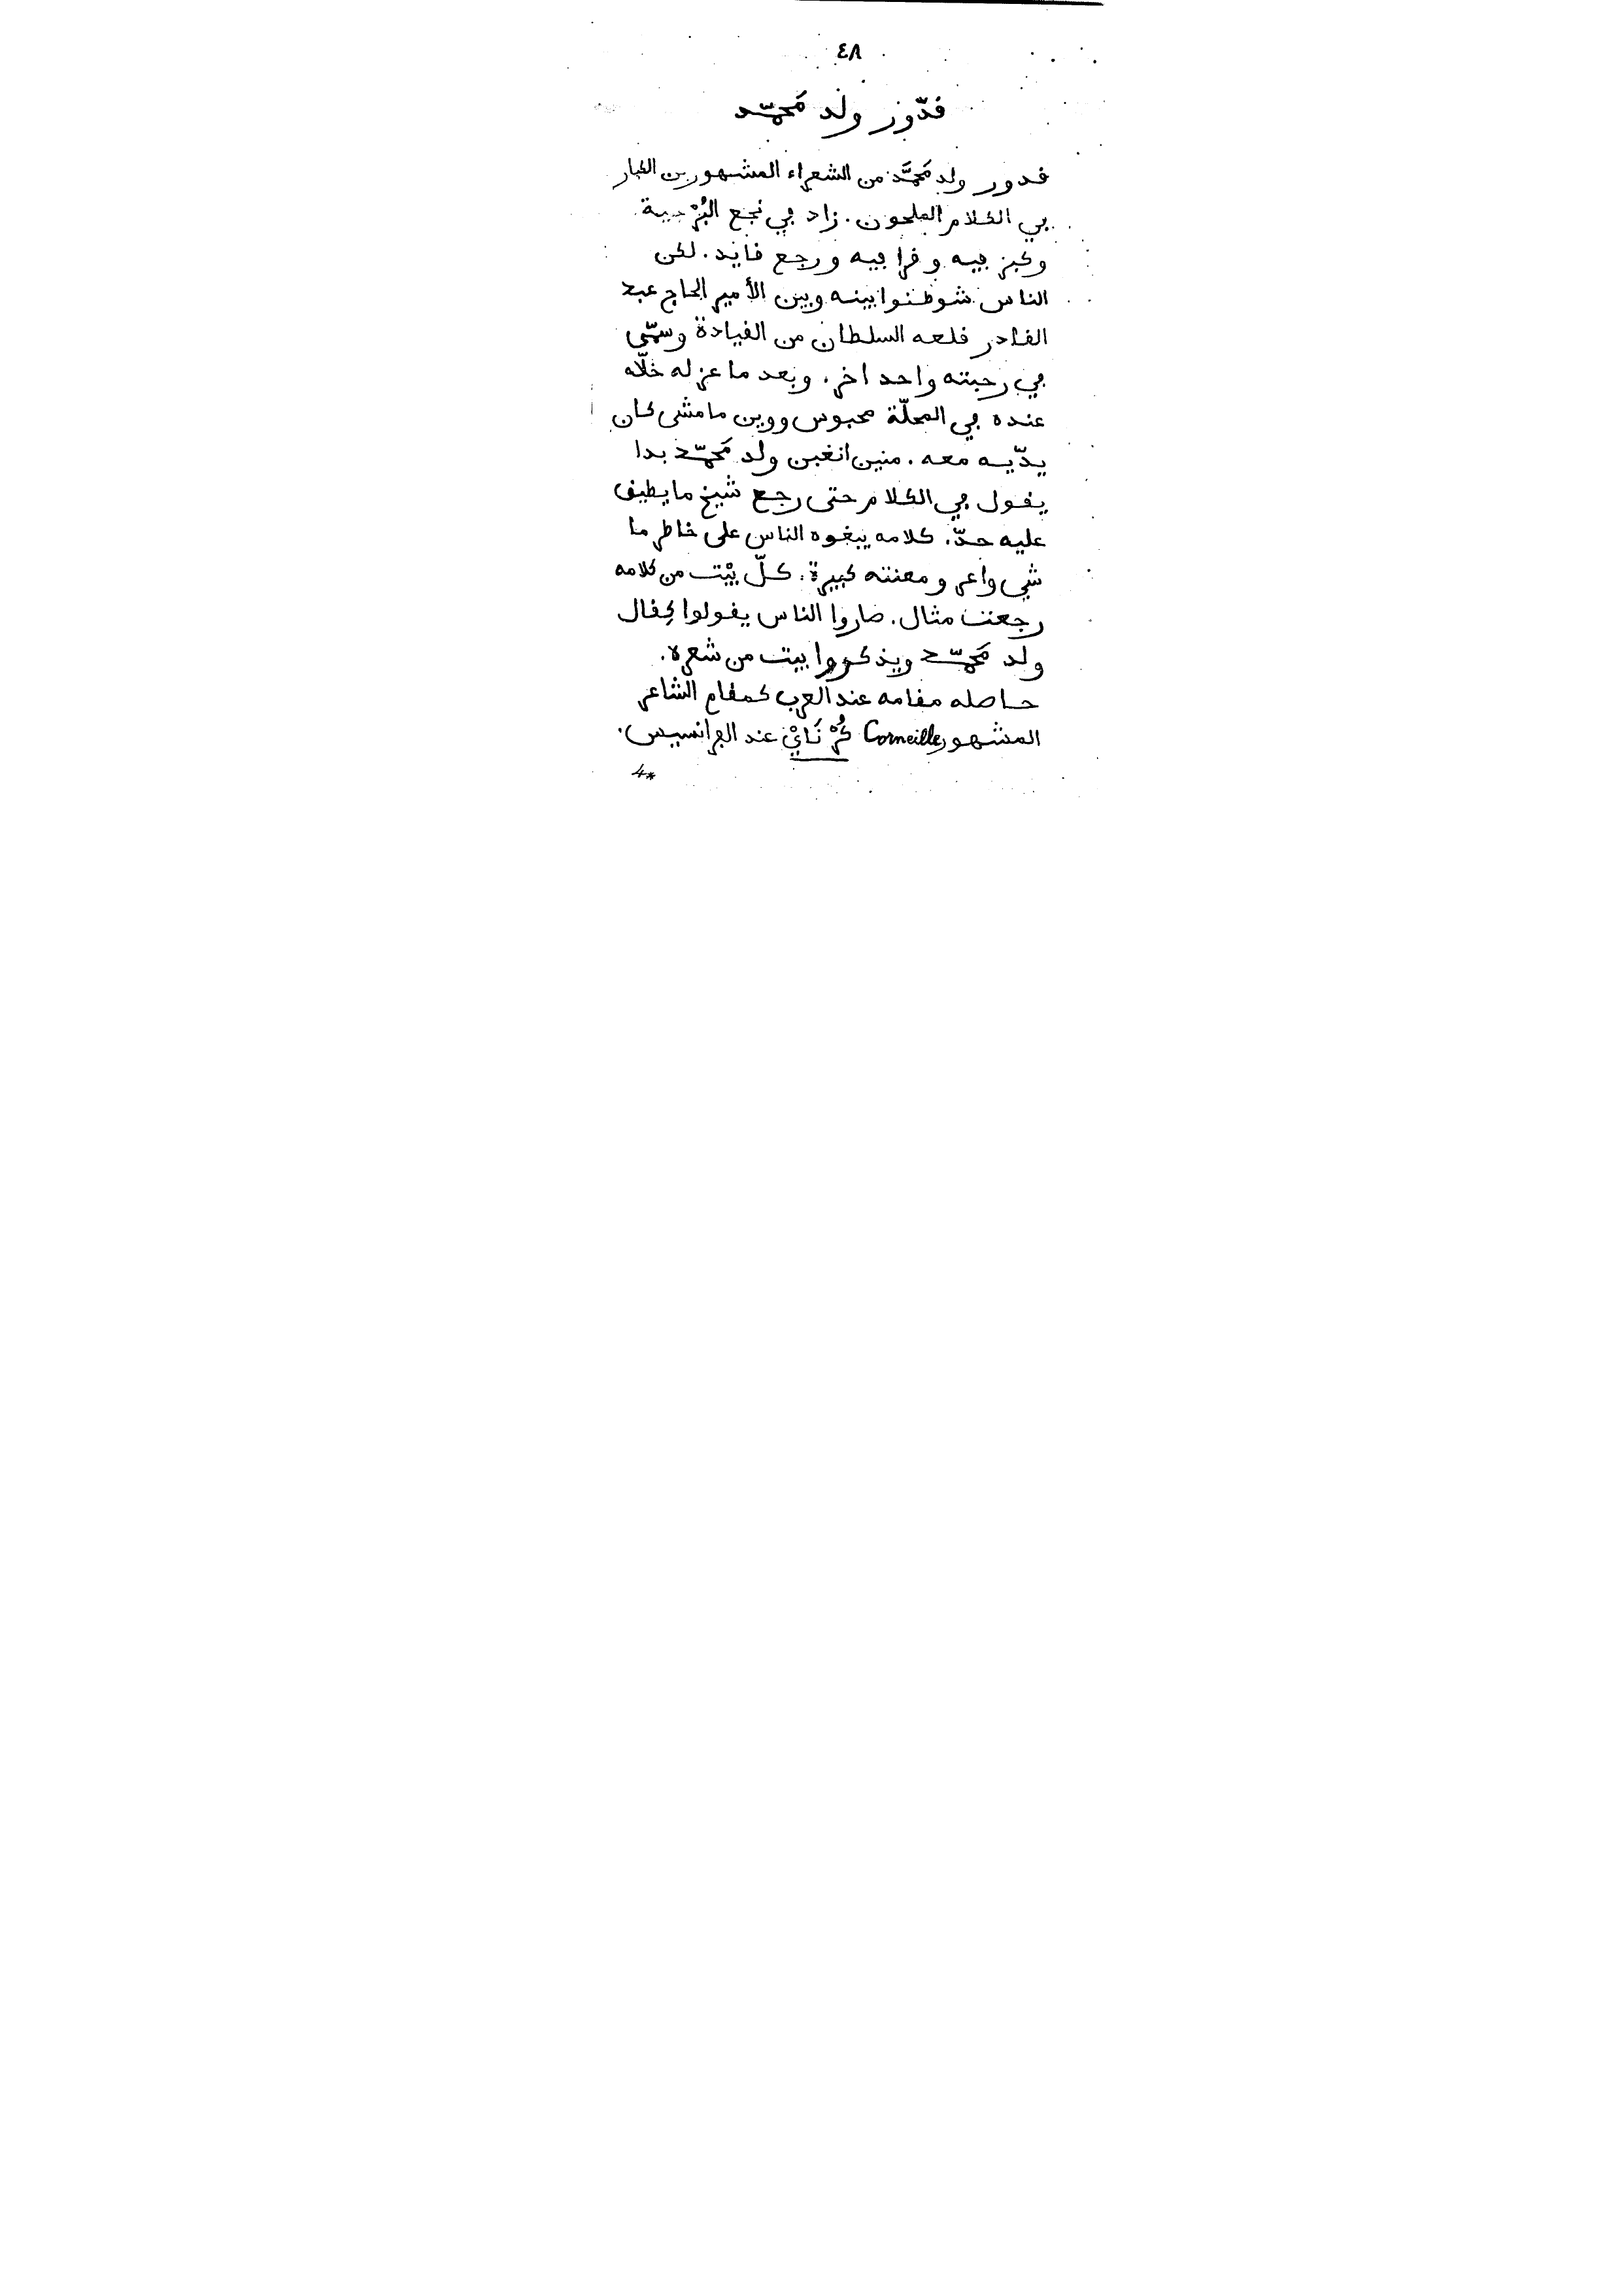 ٤٨
فدّور ولد مَحمّد
فدور ولد مَحمَّد من الشعراء المشهورين الكبار
ڢي الكلام الملحون. زاد ڢي نجع البُرْجية
وكبر ڢيه وفرا ڢيه ورجع فايد. لكن
الناس شوطنوا بينه وبين الأمير الحاج عبد
الفادر فلعه السلطان من الفيادة وسمّى
ڢي رحبته واحد اخر. وبعد ما عزله خلّاه
عنده ڢي المحلّة محبوس ووين ما مشى كان
يدّيه معه. منين انغبن ولد مَحمّد بدا
يفول ڢي الكلام حتى رجع شيخ ما يطيف
عليه حدّ. كلامه يبغوه الناس على خاطر ما
شي واعر ومعنته كبيرة. كلّ بيْت من كلامه
رجعت مثال. صاروا الناس يفولوا كِفال
ولد مَحمّد ويذكروا بيت من شعره.
حاصله مفامه عند العرب كمفام الشاعر
المشهور Corneille كُرْنَايْ عند الڢرانسيس.
4*